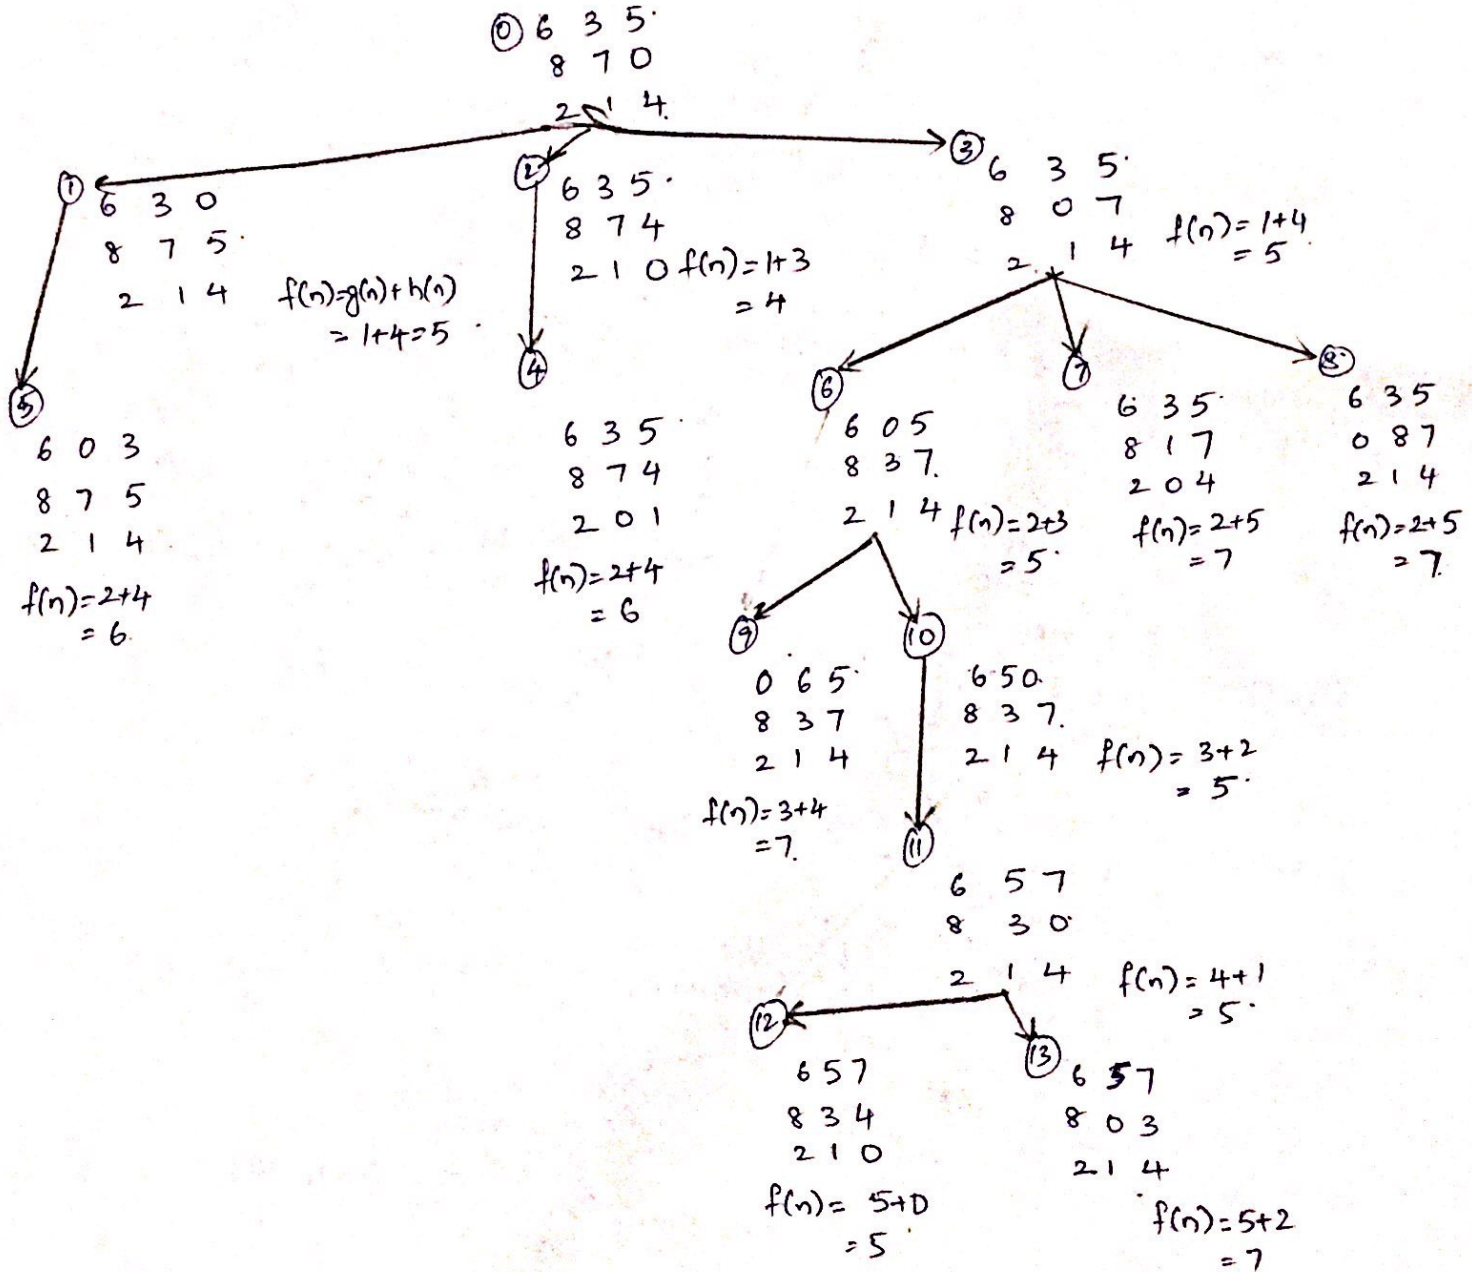 ⓪ 6 3 5
8 7 0
2 1 4
①
6 3 0
8 7 5
2 1 4
f(n)=g(n)+h(n)
= 1+4=5
②
6 3 5
8 7 4
2 1 0
f(n)=1+3
= 4
③
6 3 5
8 0 7
2 1 4
f(n)=1+4
= 5
⑤
6 0 3
8 7 5
2 1 4
f(n)=2+4
= 6
④
6 3 5
8 7 4
2 0 1
f(n)=2+4
= 6
⑥
6 0 5
8 3 7
2 1 4
f(n)=2+3
= 5
⑦
6 3 5
8 1 7
2 0 4
f(n)=2+5
= 7
⑧
6 3 5
0 8 7
2 1 4
f(n)=2+5
= 7
⑨
0 6 5
8 3 7
2 1 4
f(n)=3+4
= 7
⑩
6 5 0
8 3 7
2 1 4
f(n)= 3+2
= 5
⑪
6 5 7
8 3 0
2 1 4
f(n)= 4+1
= 5
⑫
6 5 7
8 3 4
2 1 0
f(n)= 5+0
= 5
⑬
6 5 7
8 0 3
2 1 4
f(n)=5+2
= 7